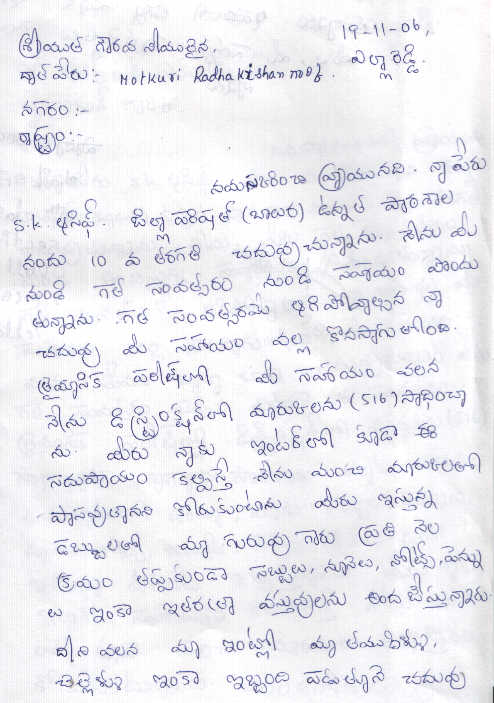 19-11-06,
శ్రీయుత గౌరవ నీయులైన. ఎల్లారెడ్డి.
దాత పేరు:- Motkuri Radhakrishan
నగరం:-
రాష్ట్రం:-
నమస్కరించి వ్రాయునది. నా పేరు
S.K. ఆసిఫ్. జిల్లా పరిషత్ (బాలుర) ఉన్నత పాఠశాల
నందు 10 వ తరగతి చదువు చున్నాను. నేను మీ
నుండి గత సంవత్సరం నుండి సహాయం పొందు
తున్నాను. గత సంవత్సరమే ఆగిపోవాల్సిన నా
చదువు మీ సహాయం వల్ల కొనసాగుతోంది.
త్రైమాసిక పరీక్షలో మీ సహాయం వలన
నేను డిస్టింక్షన్‌లో మార్కులను (516) సాధించా
ను. మీరు నాకు ఇంటర్‌లో కూడా ఈ
సదుపాయం కల్పిస్తే నేను మంచి మార్కులతో
పాసవుతానని కోరుకుంటాను మీరు ఇస్తున్న
డబ్బులతో మా గురువు గారు ప్రతి నెల
క్రమం తప్పకుండా సబ్బులు, నూనెలు, నోట్స్, పెన్ను
లు ఇంకా ఇతరత్రా వస్తువులను అంద జేస్తున్నారు.
దీని వలన మా ఇంట్లో మా తమ్ముళ్ళు,
చెల్లెళ్ళు ఇంకా ఇబ్బంది పడుతూనే చదువు